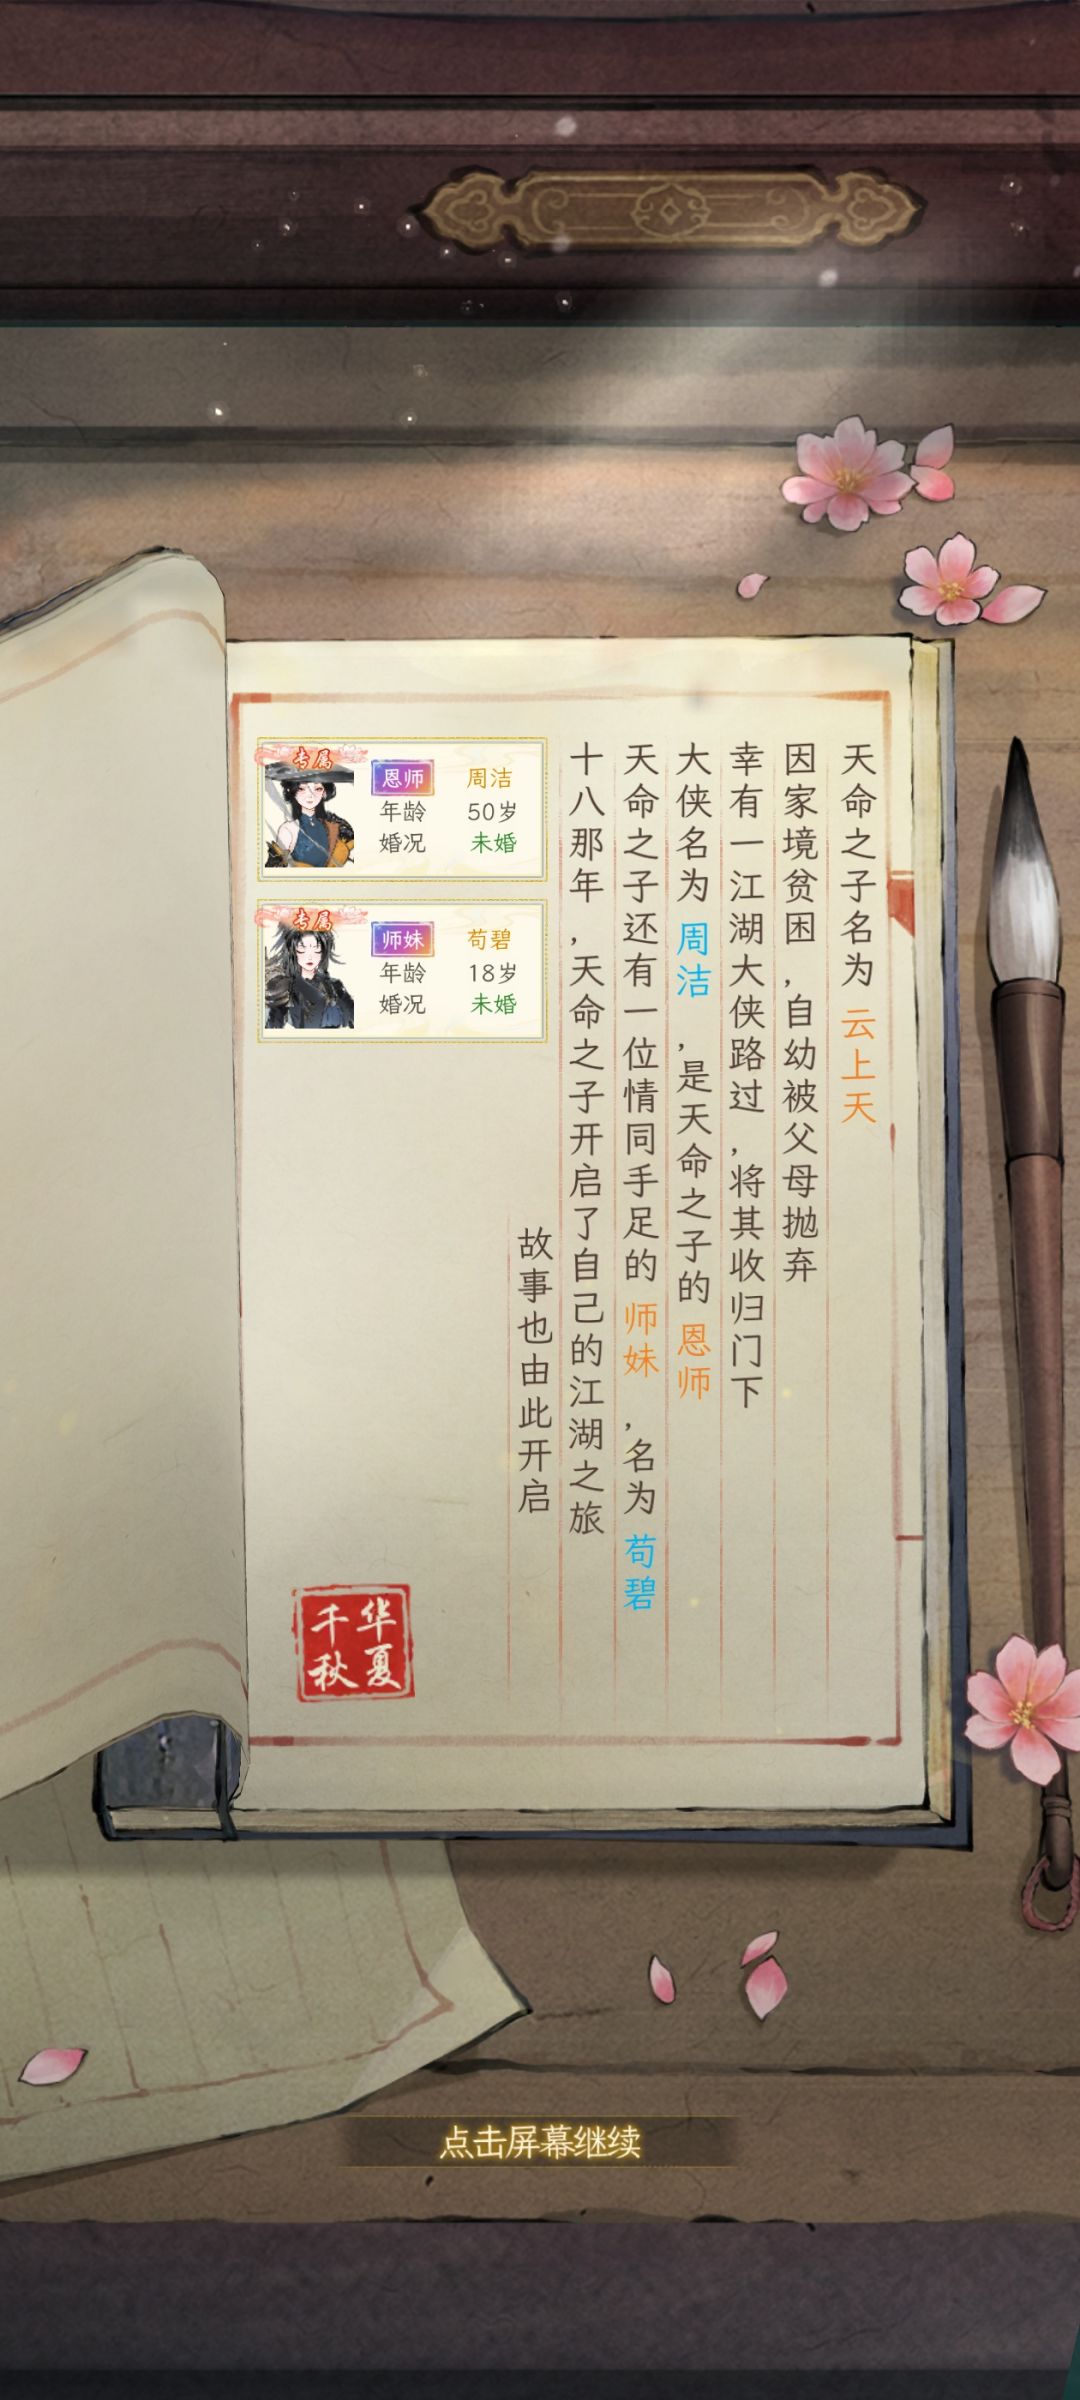 天命之子名为 云上天
因家境贫困，自幼被父母抛弃
幸有一江湖大侠路过，将其收归门下
大侠名为 周洁 ，是天命之子的 恩师
天命之子还有一位情同手足的 师妹 ，名为 苟碧
十八那年，天命之子开启了自己的江湖之旅
故事也由此开启
专属
恩师 周洁
年龄 50岁
婚况 未婚
专属
师妹 苟碧
年龄 18岁
婚况 未婚
华夏
千秋
点击屏幕继续